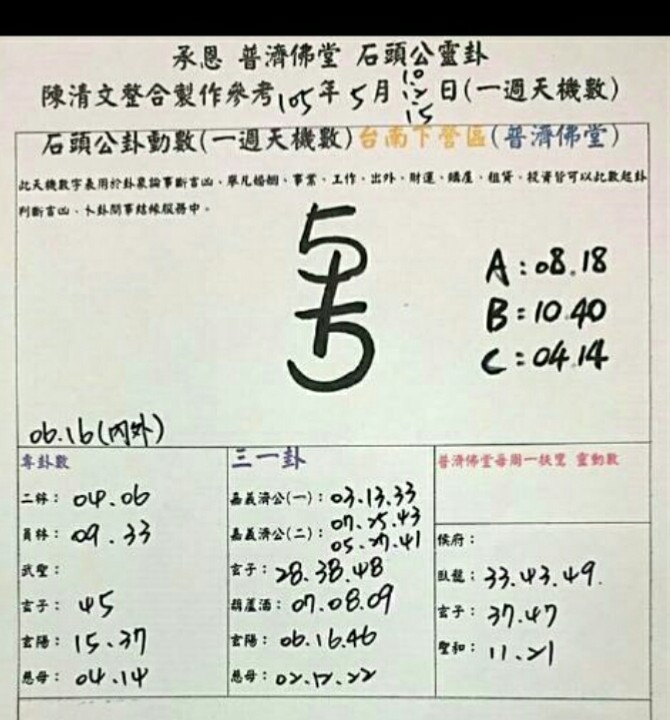 承恩 普濟佛堂 石頭公靈卦
陳清文整合製作參考105年5月10.12.15日(一週天機數)
石頭公卦動數(一週天機數)台南下營區(普濟佛堂)
此天機數字表用於卦象論事斷吉凶、舉凡婚姻、事業、工作、出外、財運、購屋、租賃、投資皆可以此數起卦
判斷吉凶、卜卦問事結緣服務中。
A:08.18
B:10.40
C:04.14
06.16(內外)
專卦數
二林:04.06
員林:09.33
武聖:
玄子:45
玄陽:15.37
慈母:04.14
三一卦
嘉義濟公(一):03.13.33
嘉義濟公(二):07.25.43
05.27.41
玄子:28.38.48
葫蘆酒:07.08.09
玄陽:06.16.46
慈母:02.12.22
普濟佛堂每周一執筊 靈動數
侯府:
臥龍:33.43.49.
玄子:37.47
聖和:11.21